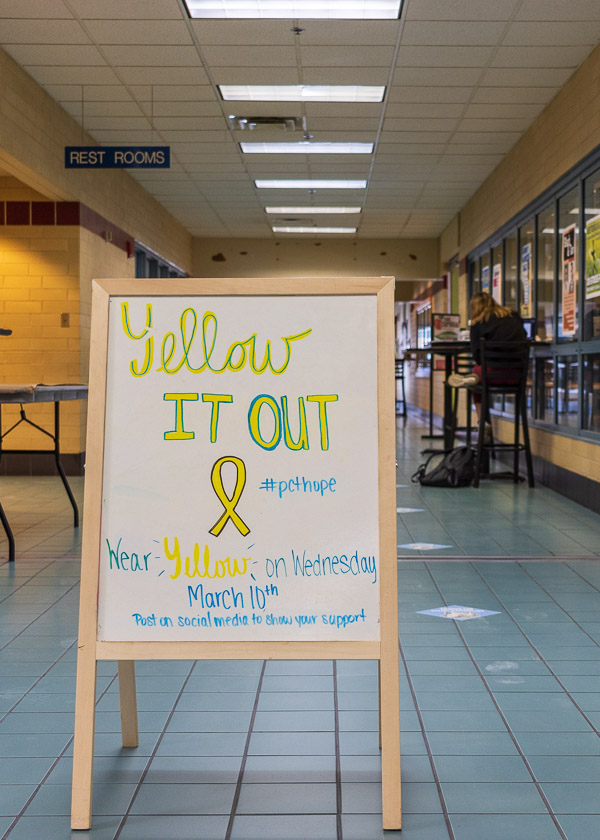 REST ROOMS
Yellow
IT OUT
#pcthope
Wear Yellow on Wednesday
March 10th
Post on social media to show your support